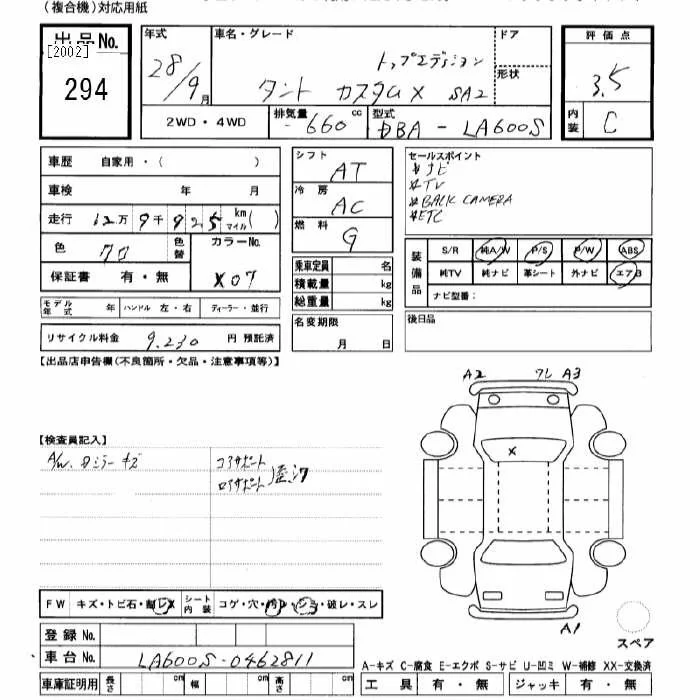 (複合機)対応用紙
出品No.
[2002]
294
年式
28/9月
車名・グレード
トップエディション
タント カスタムX SA2
ドア
形状
評価点
3.5
内装
C
2WD・4WD
排気量
660 cc
型式
DBA - LA600S
車歴 自家用・( )
車検 年 月
走行 12万9千925 km マイル( )
色 クロ
色替
カラーNo.
X07
保証書 有・無
シフト
AT
冷房
AC
燃料
G
乗車定員 名
積載量 kg
総重量 kg
セールスポイント
*ナビ
*TV
*BACK CAMERA
*ETC
装備品
S/R 純A/W P/S P/W ABS
純TV 純ナビ 革シート 外ナビ エアB
ナビ型番:
モデル年式 年
ハンドル 左・右
ディーラー・並行
名変期限
月 日
後日品
リサイクル料金 9,230 円 預託済
【出品店申告欄(不良箇所・欠品・注意事項等)】
A2 ワレ A3
X
【検査員記入】
A/W, ミラー キズ
コアサポート
ロアサポート
A1
FW キズ・トビ石・
シート内装 コゲ・穴・汚レ・シミ・破レ・スレ
スペア
登録No.
車台No. LA600S-0462811
A-キズ C-腐食 E-エクボ S-サビ U-凹ミ W-補修 XX-交換済
車庫証明用 長さ cm 幅 cm 高さ cm
工具 有・無 ジャッキ 有・無